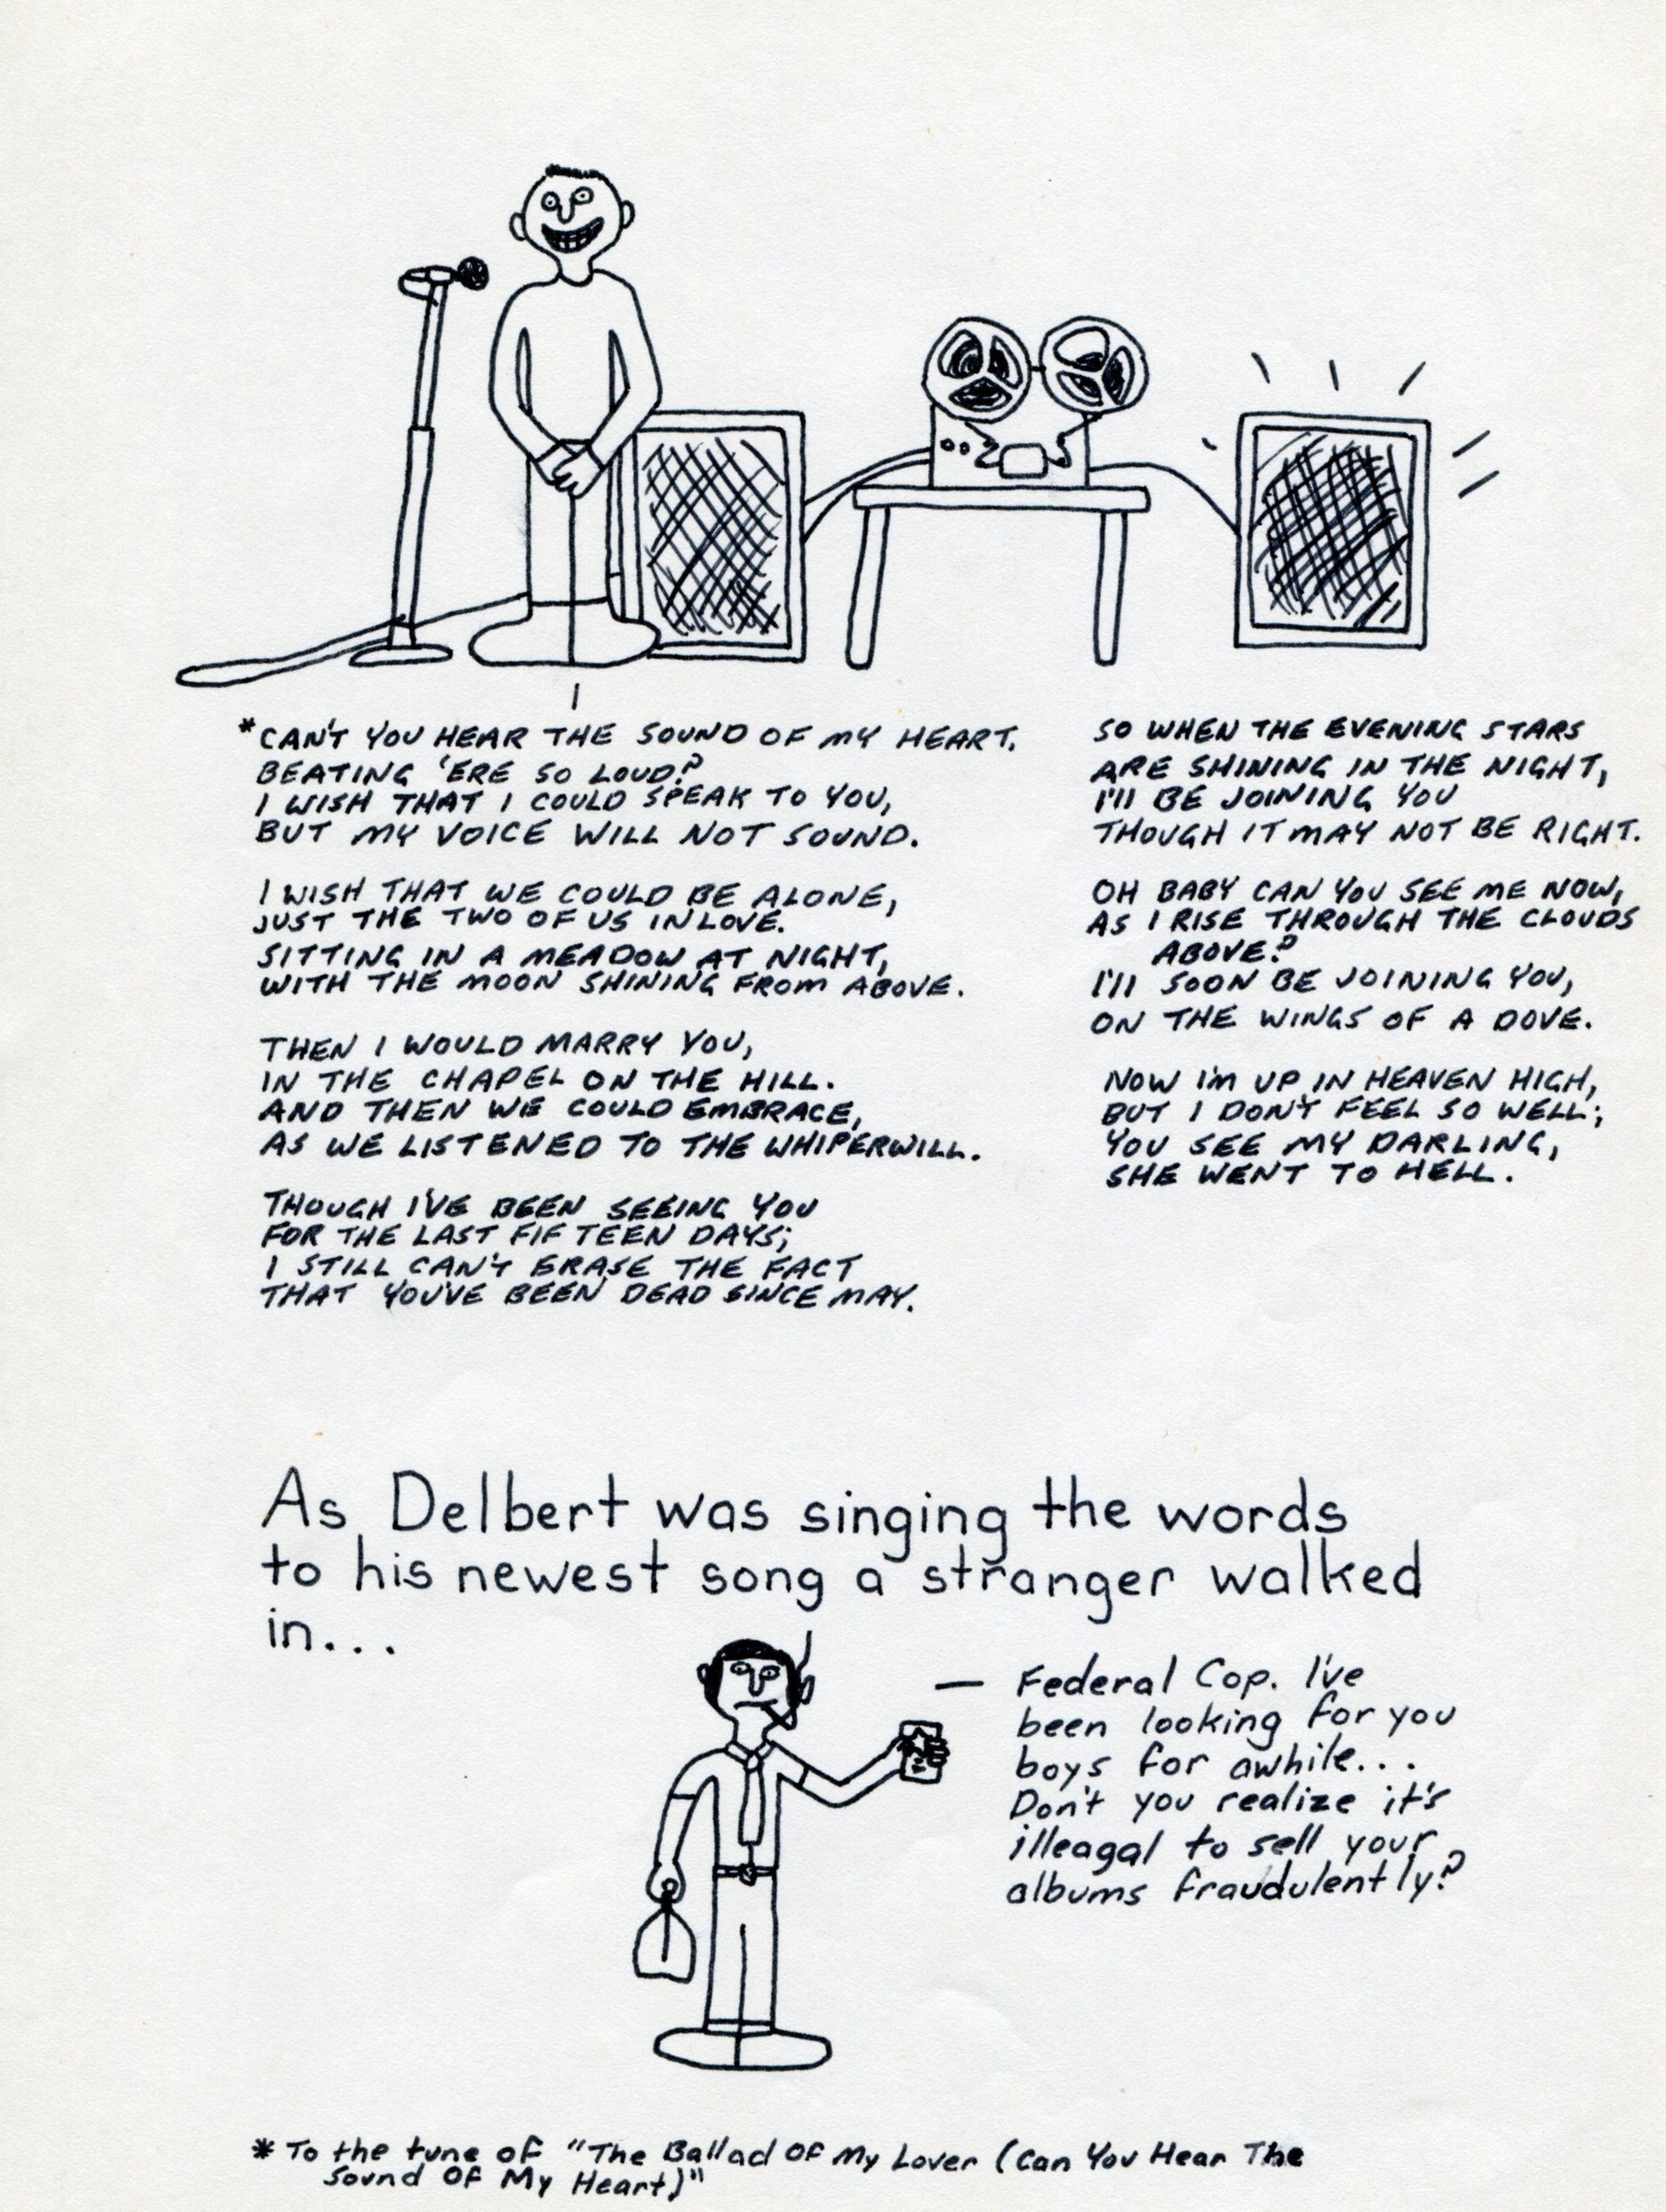 *CAN'T YOU HEAR THE SOUND OF MY HEART.
BEATING 'ERE SO LOUD?
I WISH THAT I COULD SPEAK TO YOU,
BUT MY VOICE WILL NOT SOUND.
I WISH THAT WE COULD BE ALONE,
JUST THE TWO OF US IN LOVE.
SITTING IN A MEADOW AT NIGHT,
WITH THE MOON SHINING FROM ABOVE.
THEN I WOULD MARRY YOU,
IN THE CHAPEL ON THE HILL.
AND THEN WE COULD EMBRACE,
AS WE LISTENED TO THE WHIPERWILL.
THOUGH I'VE BEEN SEEING YOU
FOR THE LAST FIFTEEN DAYS;
I STILL CAN'T ERASE THE FACT
THAT YOU'VE BEEN DEAD SINCE MAY.
SO WHEN THE EVENING STARS
ARE SHINING IN THE NIGHT,
I'll BE JOINING YOU
THOUGH IT MAY NOT BE RIGHT.
OH BABY CAN YOU SEE ME NOW,
AS I RISE THROUGH THE CLOUDS
ABOVE?
I'll SOON BE JOINING YOU,
ON THE WINGS OF A DOVE.
NOW I'M UP IN HEAVEN HIGH,
BUT I DON'T FEEL SO WELL;
YOU SEE MY DARLING,
SHE WENT TO HELL.
As Delbert was singing the words
to his newest song a stranger walked
in...
— Federal Cop. I've
been looking for you
boys for awhile...
Don't you realize it's
illeagal to sell your
albums fraudulently?
* To the tune of "The Ballad Of My Lover (Can You Hear The
Sound Of My Heart)"